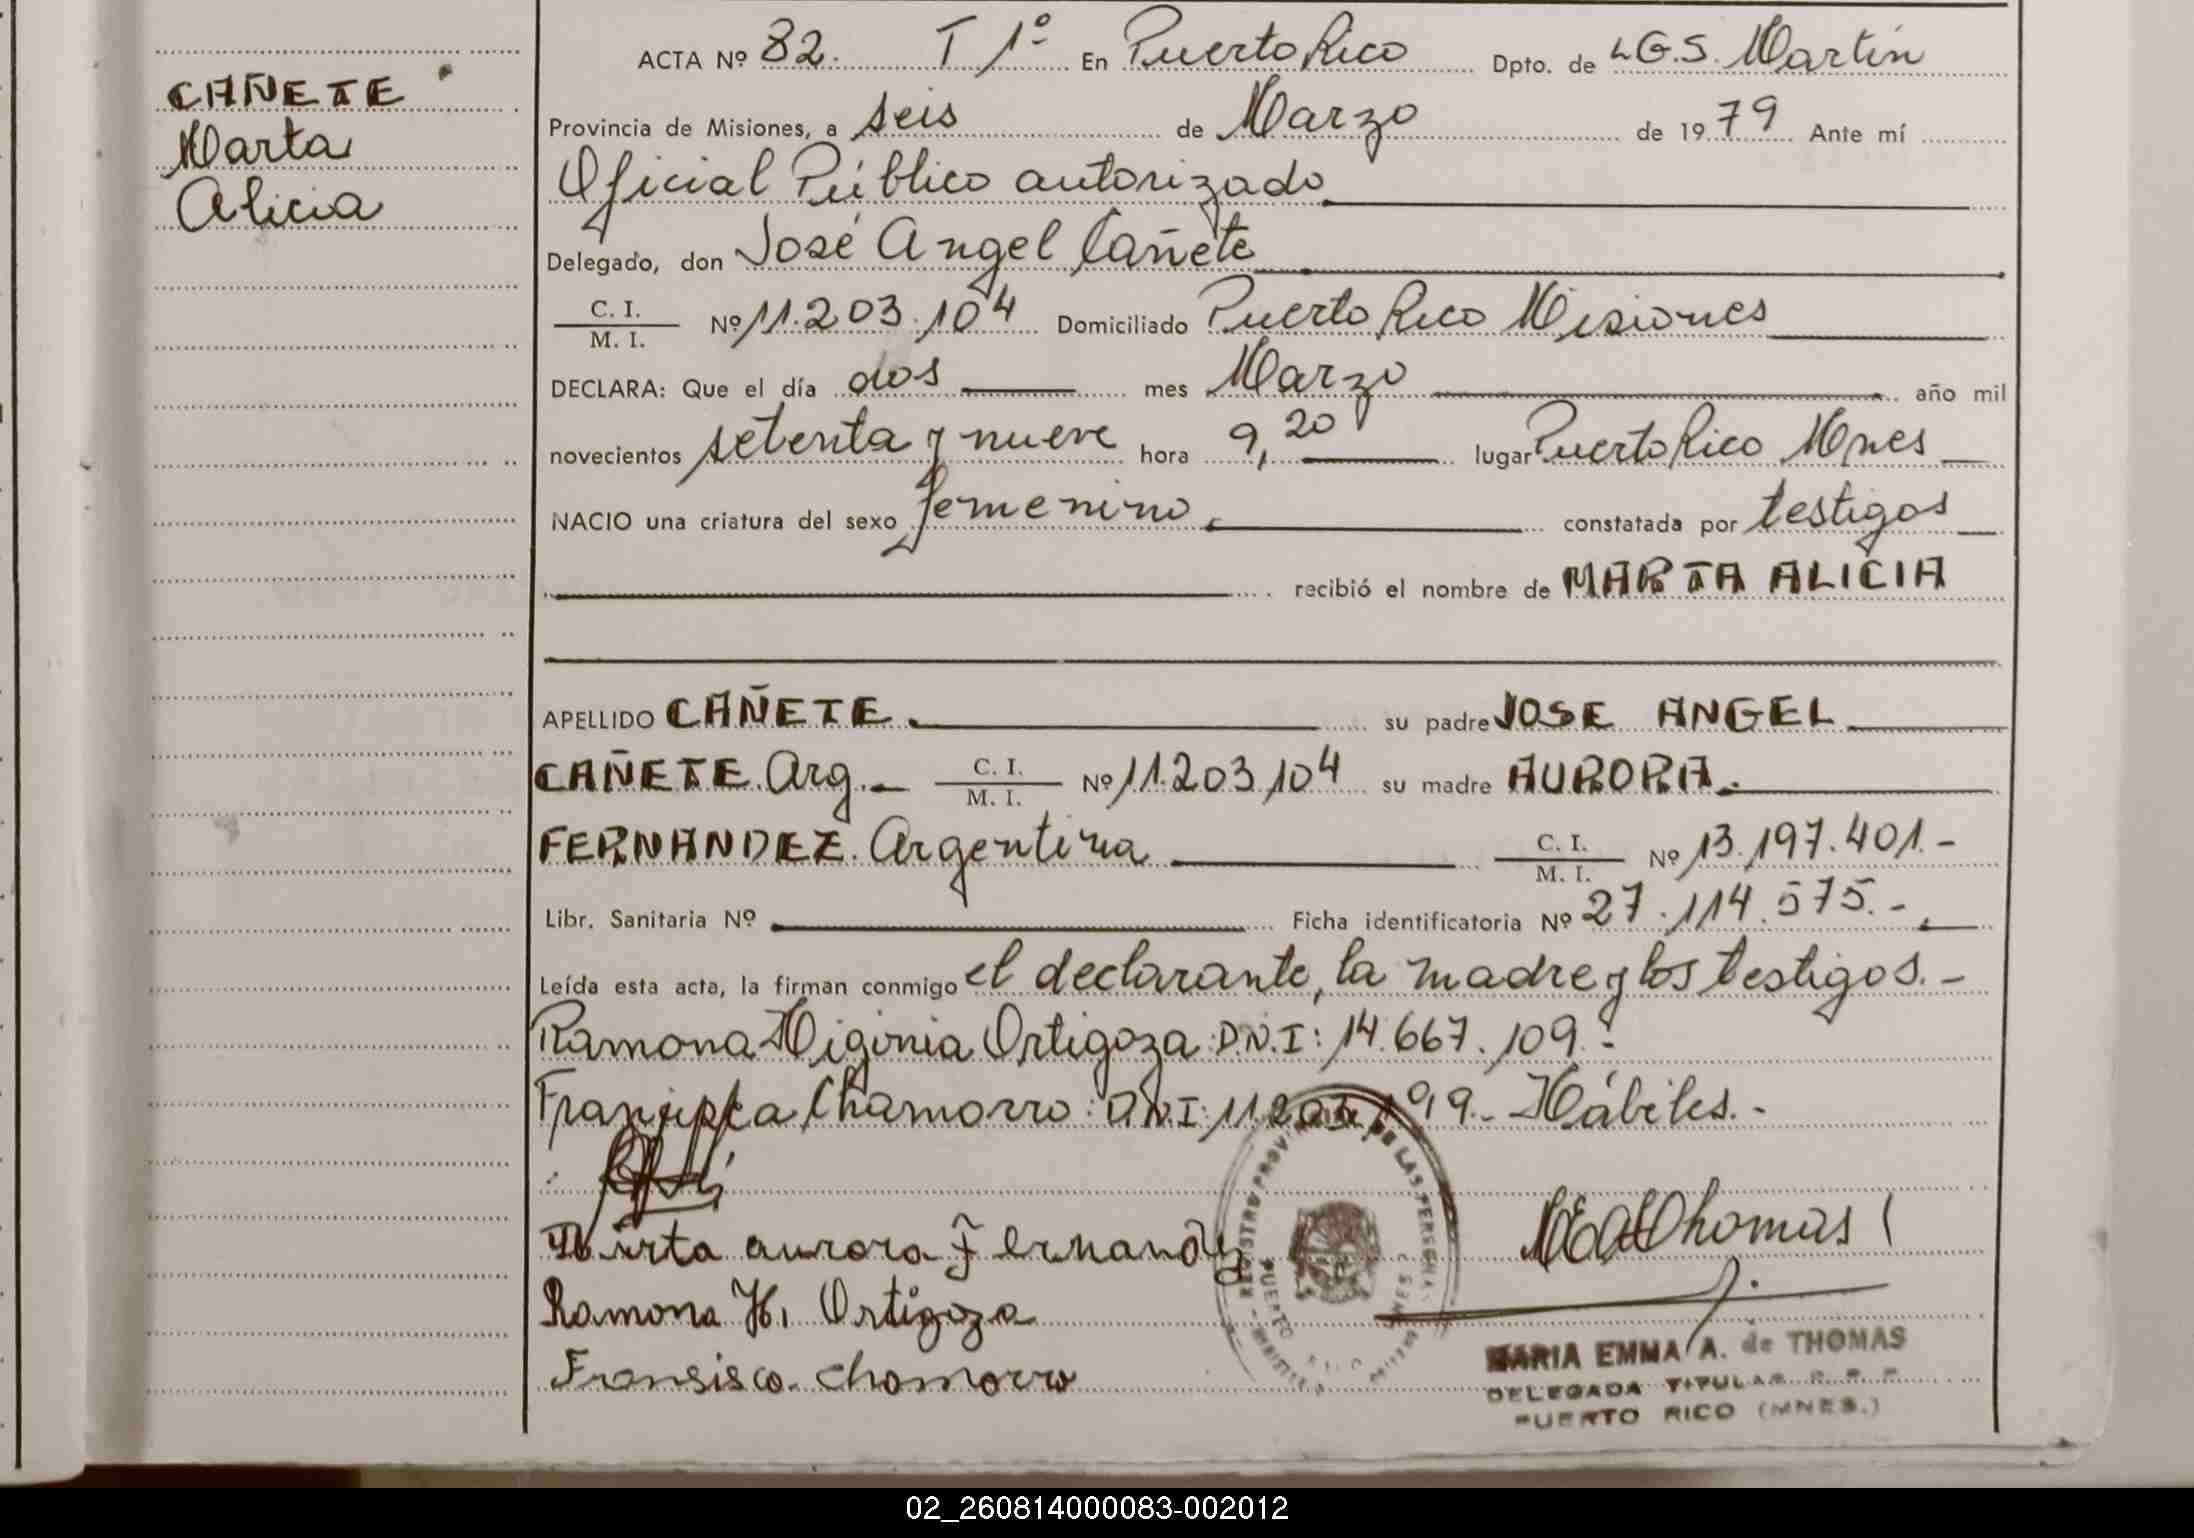 CAÑETE
Marta
Alicia
ACTA Nº 82. T 1º En Puerto Rico Dpto. de LG.S. Martín
Provincia de Misiones, a seis de Marzo de 1979 Ante mí
Oficial Público autorizado
Delegado, don José Angel Cañete
C. I.
M. I. Nº 11.203.104 Domiciliado Puerto Rico Misiones
DECLARA: Que el día dos mes Marzo año mil
novecientos setenta y nueve hora 9,20 lugar Puerto Rico Mnes
NACIO una criatura del sexo femenino. constatada por testigos
recibió el nombre de MARTA ALICIA
APELLIDO CAÑETE. su padre JOSE ANGEL
CAÑETE. Arg.- C. I. M. I. Nº 11.203.104 su madre AURORA.
FERNANDEZ. Argentina C. I. M. I. Nº 13.197.401.-
Libr. Sanitaria Nº Ficha identificatoria Nº 27.114.575.-
Leída esta acta, la firman conmigo el declarante, la madre y los testigos.-
Ramona Higinia Ortigoza D.N.I: 14.667.109.-
Chamorro: D.N.I: Hábiles.-
Mirta aurora Fernandez
Ramona H. Ortigoza
Fransisco. chamorro
MEAThomas
REGISTRO PROV DE LAS PERSONAS
PUERTO RICO MISIONES
MARIA EMMA A. de THOMAS
DELEGADA TITULAR R. P. P.
PUERTO RICO (MNES.)
02_260814000083-002012